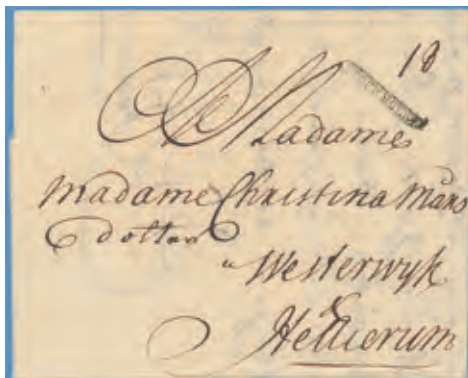 18
A Madame
Madame Christina Måns
dotter
Westerwyk
&
Hellierum